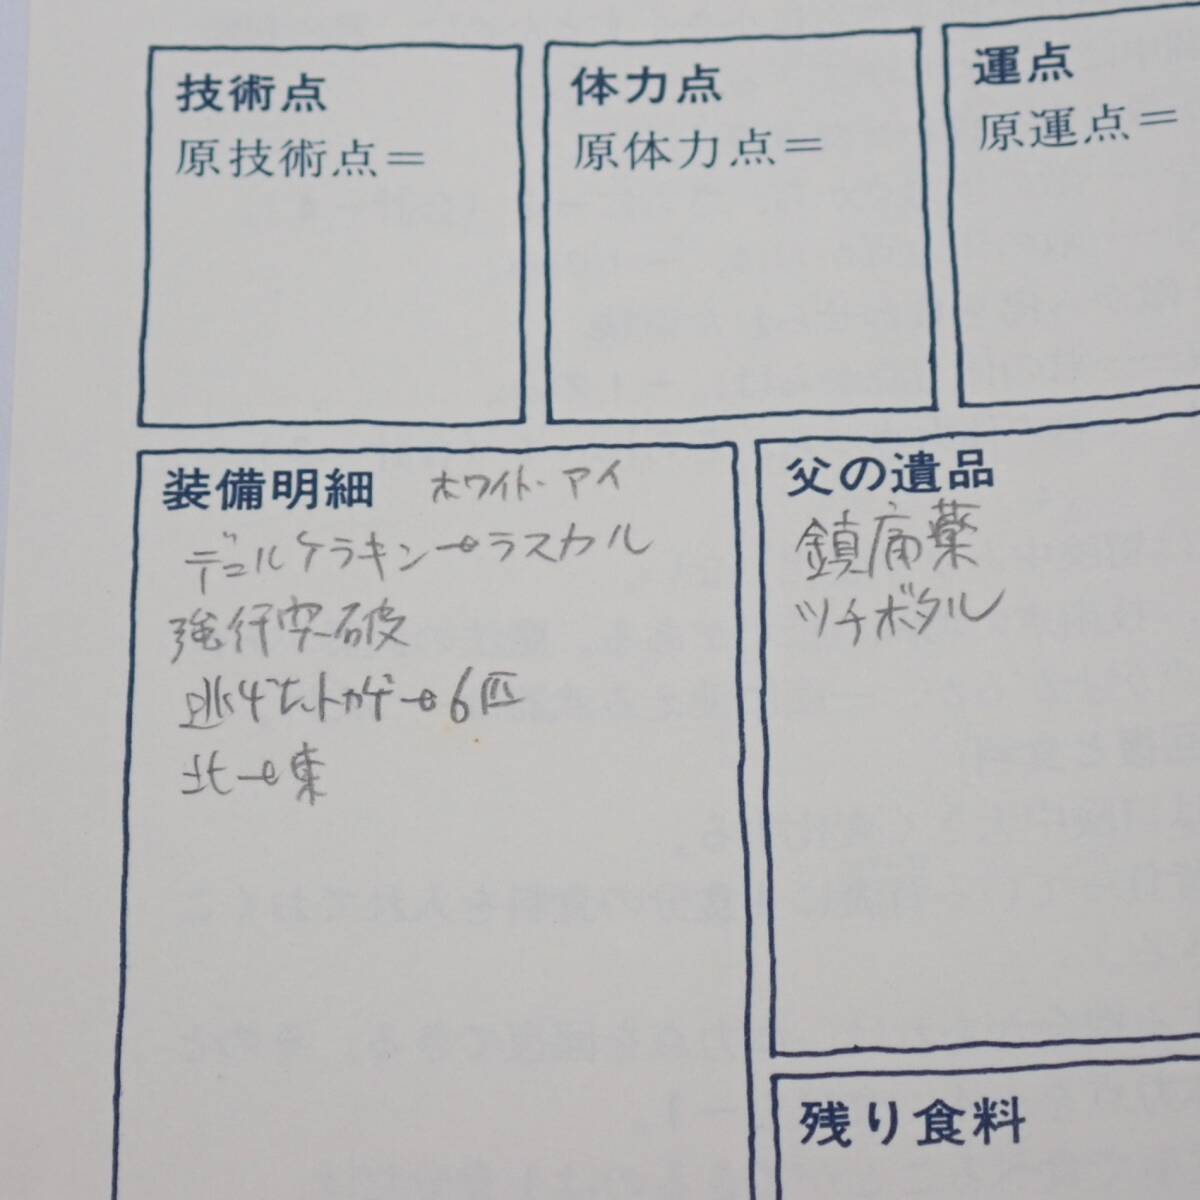 技術点
原技術点＝
体力点
原体力点＝
運点
原運点＝
装備明細 ホワイト・アイ
デュルケラキン→ラスカル
強行突破
逃げたトカゲ→6匹
北→東
父の遺品
鎮痛薬
ツチボタル
残り食料